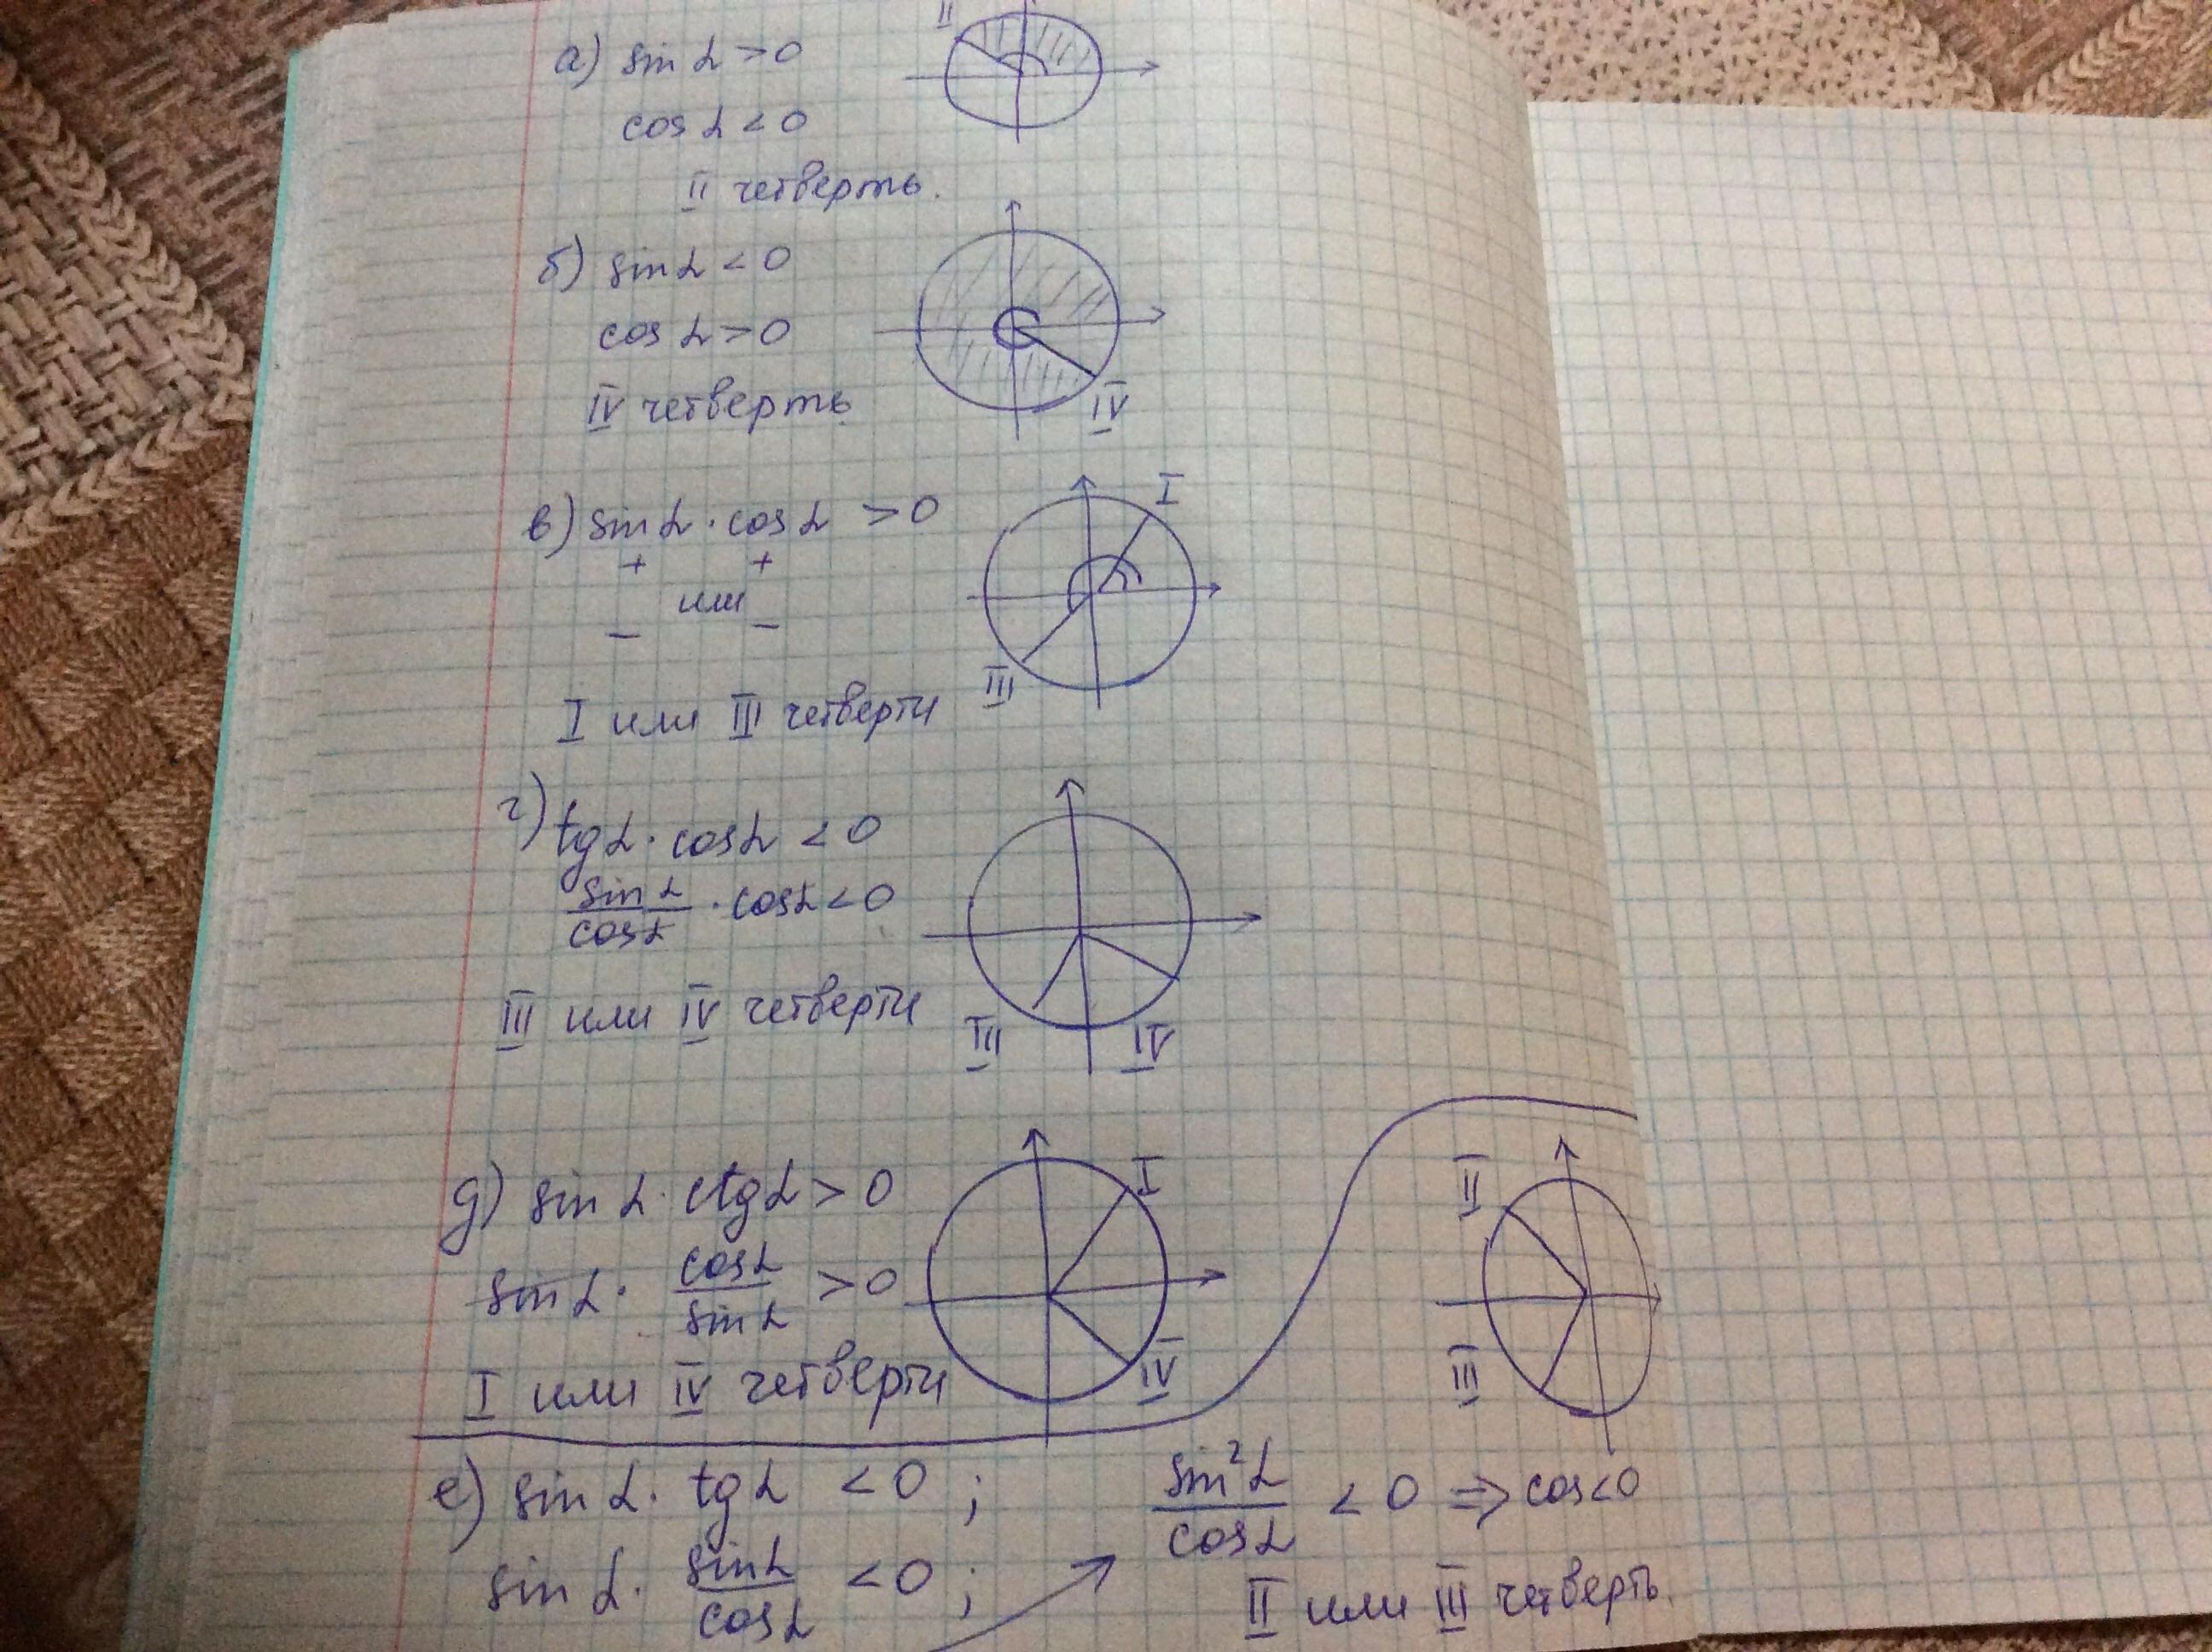 II
а) sin α > 0
cos α < 0
II четверть.
б) sin α < 0
cos α > 0
IV четверть
IV
в) sin α · cos α > 0
+ +
или
– –
I
III
I или III четверти
г) tg α · cos α < 0
sin α / cos α · cos α < 0
III или IV четверти
III IV
д) sin α · ctg α > 0
sin α · cos α / sin α > 0
I или IV четверти
I
IV
II
III
е) sin α · tg α < 0 ;
sin α · sin α / cos α < 0 ;
sin² α / cos α < 0 ⇒ cos < 0
II или III четверть.